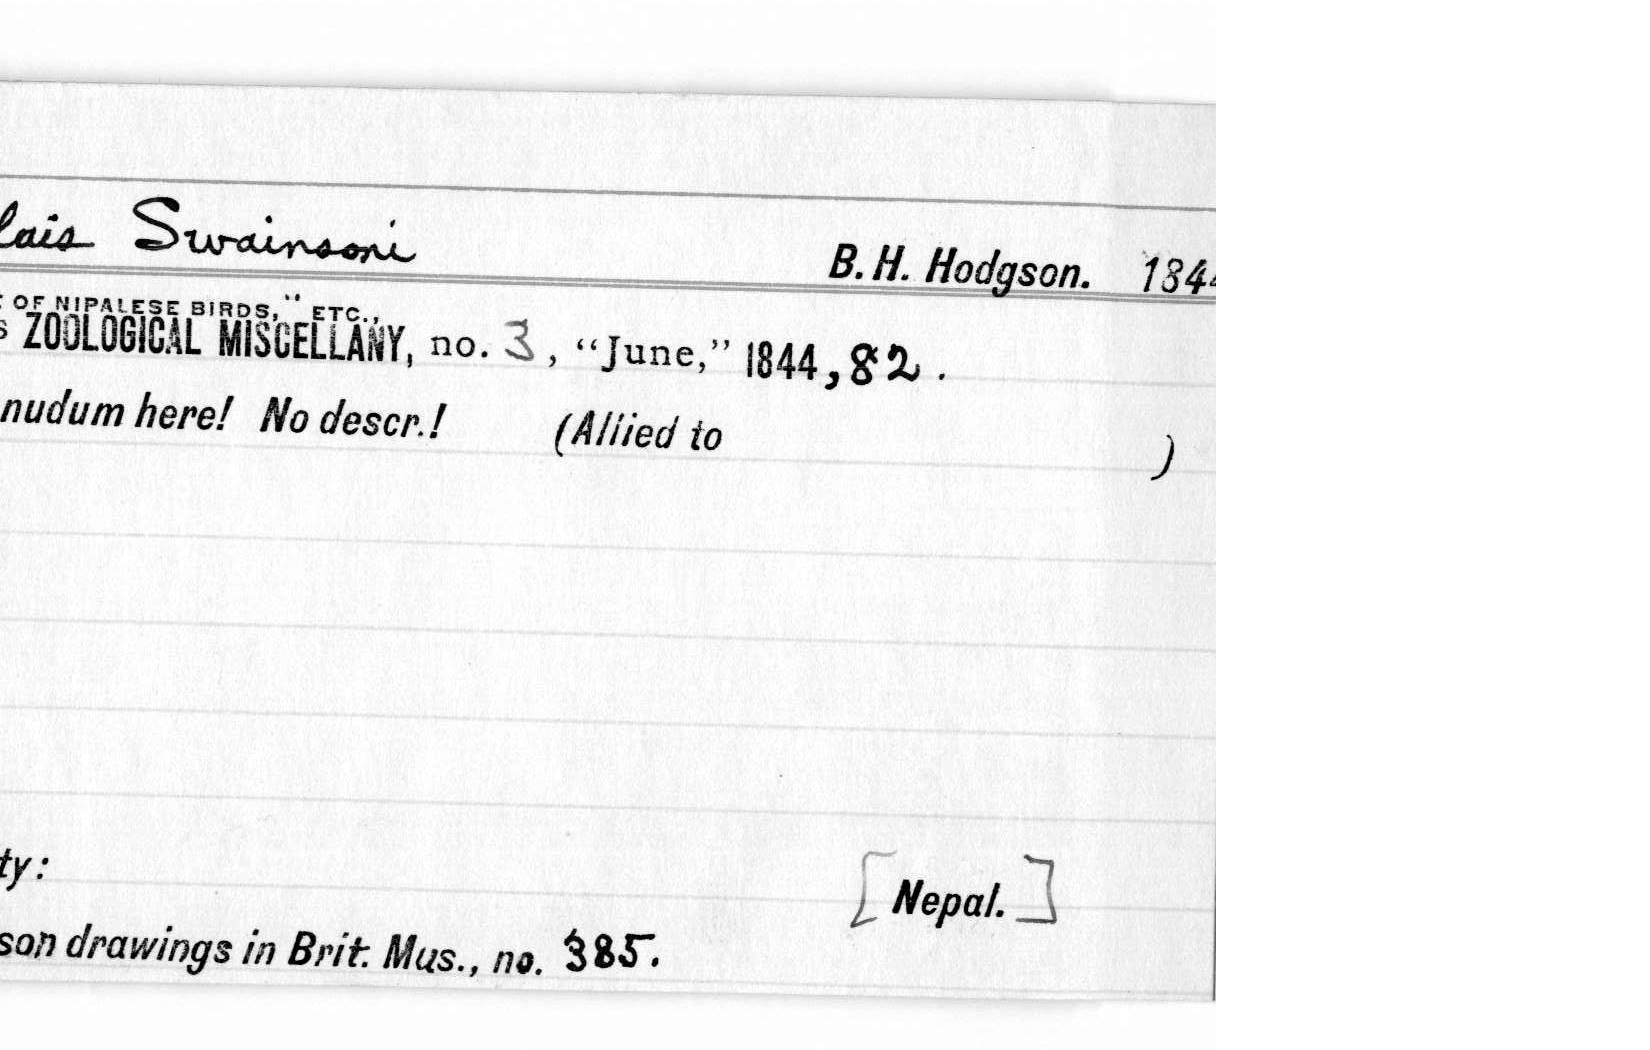 lais Swainsoni B. H. Hodgson. 1844
OF NIPALESE BIRDS," ETC.,
s ZOOLOGICAL MISCELLANY, no. 3, “June,” 1844, 82.
nudum here! No descr.! (Allied to )
ty: [Nepal.]
son drawings in Brit. Mus., no. 385.